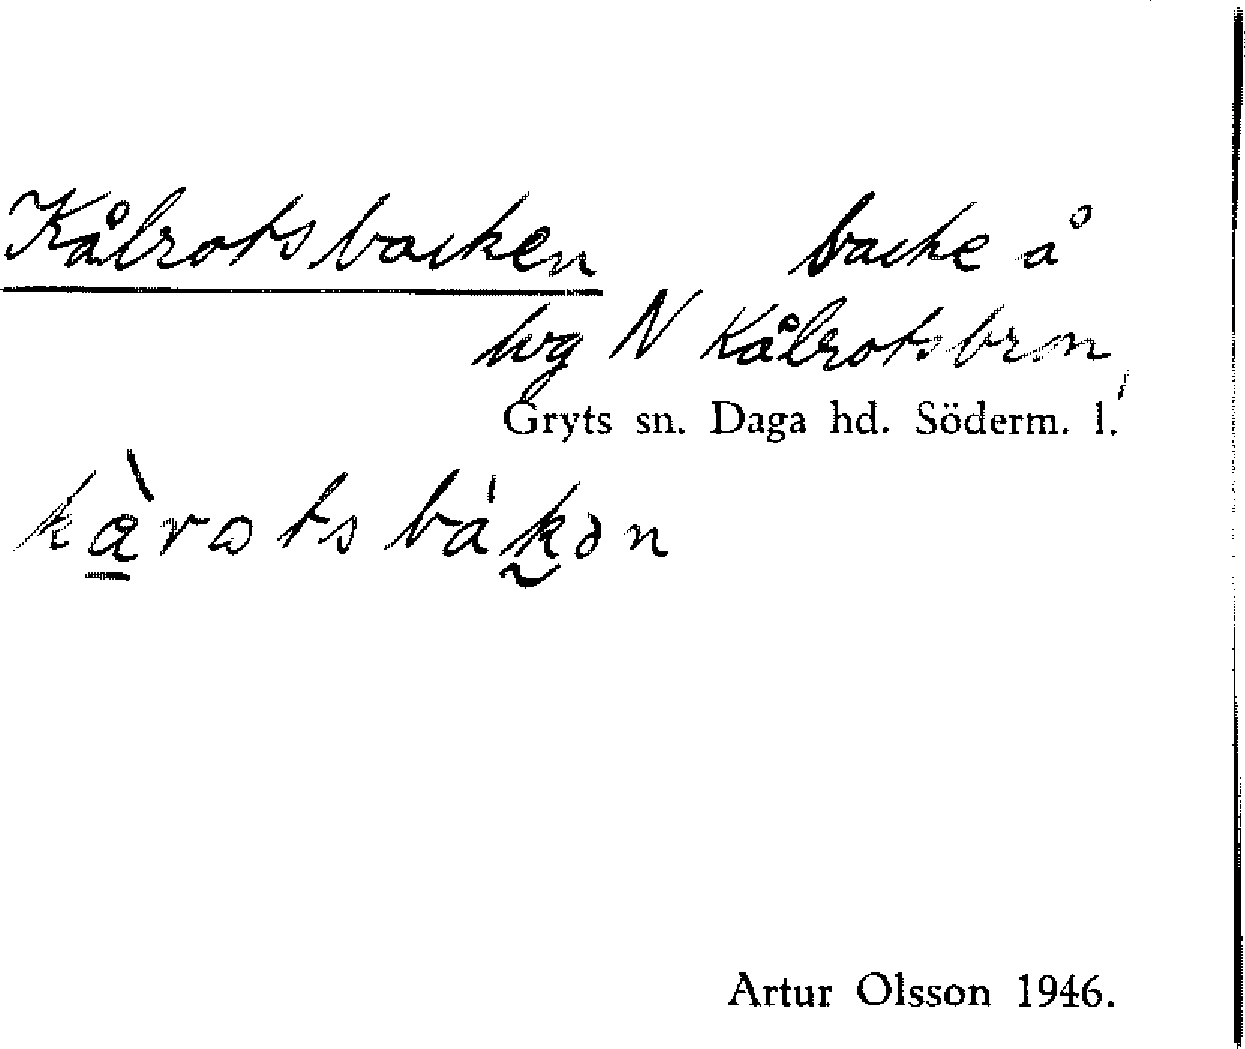 Kålrotsbacken backe å
vg N Kålrotsbrn,
Gryts sn. Daga hd. Söderm. l.
kàrotsbákən
Artur Olsson 1946.